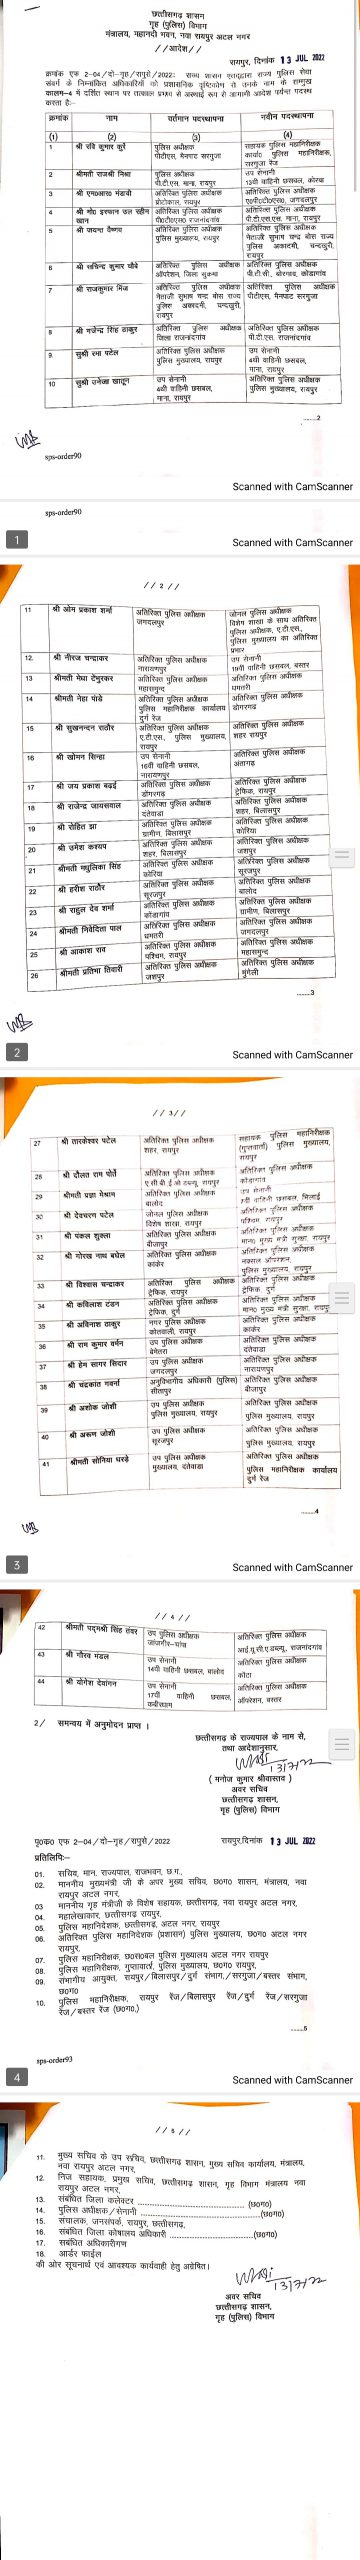 छत्तीसगढ़ शासन
गृह (पुलिस) विभाग
मंत्रालय, महानदी भवन, नवा रायपुर अटल नगर
//आदेश//
रायपुर, दिनांक 13 JUL 2022
क्रमांक एफ 2-04/दो-गृह/रापुसे/2022: राज्य शासन एतद्द्वारा राज्य पुलिस सेवा
संवर्ग के निम्नांकित अधिकारियों को प्रशासनिक दृष्टिकोण से उनके नाम के सम्मुख
कालम-4 में दर्शित स्थान पर तत्काल प्रभाव से अस्थाई रूप से आगामी आदेश पर्यन्त पदस्थ
करता है:-
क्रमांक नाम वर्तमान पदस्थापना नवीन पदस्थापना
(1) (2) (3) (4)
1 श्री रवि कुमार कुर्रे पुलिस अधीक्षक सहायक पुलिस महानिरीक्षक
पीटीएस, मैनपाट सरगुजा कार्या० पुलिस महानिरीक्षक,
सरगुजा रेंज
2 श्रीमती राजश्री मिश्रा पुलिस अधीक्षक उप सेनानी
पी.टी.एस. माना, रायपुर 13वी वाहिनी छसबल, कोरबा
3 श्री एम०आर० मंडावी अतिरिक्त पुलिस अधीक्षक अतिरिक्त पुलिस अधीक्षक
प्रोटोकाल, रायपुर जगदलपुर
4 श्री मो० इरफान उल रहीम अतिरिक्त पुलिस अधीक्षक अतिरिक्त पुलिस अधीक्षक
खान राजनांदगांव पी.टी.एस. माना, रायपुर
5 श्री जयन्त वैष्णव अतिरिक्त पुलिस अधीक्षक अतिरिक्त पुलिस अधीक्षक
पुलिस मुख्यालय, रायपुर नेताजी सुभाष चन्द्र बोस राज्य
पुलिस अकादमी, चन्दखुरी,
रायपुर
6 श्री सचिन्द्र कुमार चौबे अतिरिक्त पुलिस अधीक्षक अतिरिक्त पुलिस अधीक्षक
ऑपरेशन, जिला सुकमा पी.टी.सी., बोरगाव, कोंडागांव
7 श्री राजकुमार मिंज अतिरिक्त पुलिस अधीक्षक अतिरिक्त पुलिस अधीक्षक
नेताजी सुभाष चन्द्र बोस राज्य पीटीएस, मैनपाट सरगुजा
पुलिस अकादमी, चन्दखुरी,
रायपुर
8 श्री गजेन्द्र सिंह ठाकुर अतिरिक्त पुलिस अधीक्षक अतिरिक्त पुलिस अधीक्षक
जिला राजनांदगांव पी.टी.एस. राजनांदगांव
9. सुश्री रमा पटेल अतिरिक्त पुलिस अधीक्षक उप सेनानी
पुलिस मुख्यालय, रायपुर 4थी वाहिनी छसबल,
माना, रायपुर
10 सुश्री उनेजा खातून उप सेनानी अतिरिक्त पुलिस अधीक्षक
4थी वाहिनी छसबल, पुलिस मुख्यालय, रायपुर
माना, रायपुर
.......2
sps-order90
Scanned with CamScanner
sps-order90
1
Scanned with CamScanner
// 2 //
11 श्री ओम प्रकाश शर्मा अतिरिक्त पुलिस अधीक्षक जोनल पुलिस अधीक्षक
जगदलपुर विशेष शाखा के साथ अतिरिक्त
पुलिस अधीक्षक, ए.टी.एस.,
पुलिस मुख्यालय का अतिरिक्त
प्रभार
12. श्री नीरज चन्द्राकर अतिरिक्त पुलिस अधीक्षक उप सेनानी
नारायणपुर 19वी वाहिनी छसबल, बस्तर
13 श्रीमती मेघा टेंभुरकर अतिरिक्त पुलिस अधीक्षक अतिरिक्त पुलिस अधीक्षक
महासमुन्द धमतरी
14 श्रीमती नेहा पांडे अतिरिक्त पुलिस अधीक्षक अतिरिक्त पुलिस अधीक्षक
पुलिस महानिरीक्षक कार्यालय डोंगरगढ़
दुर्ग रेंज
15 श्री सुखनन्दन राठौर अतिरिक्त पुलिस अधीक्षक अतिरिक्त पुलिस अधीक्षक
ए.टी.एस., पुलिस मुख्यालय, शहर रायपुर
रायपुर
16 श्री खोमन सिन्हा उप सेनानी अतिरिक्त पुलिस अधीक्षक
16वीं वाहिनी छसबल, अंतागढ़
नारायणपुर
17 श्री जय प्रकाश बढ़ई अतिरिक्त पुलिस अधीक्षक अतिरिक्त पुलिस अधीक्षक
डोंगरगढ़ ट्रेफिक, रायपुर
18 श्री राजेन्द्र जायसवाल अतिरिक्त पुलिस अधीक्षक अतिरिक्त पुलिस अधीक्षक
दंतेवाडा शहर, बिलासपुर
19 श्री रोहित झा अतिरिक्त पुलिस अधीक्षक अतिरिक्त पुलिस अधीक्षक
ग्रामीण, बिलासपुर कोरिया
20 श्री उमेश कश्यप अतिरिक्त पुलिस अधीक्षक अतिरिक्त पुलिस अधीक्षक
शहर, बिलासपुर जशपुर
21 श्रीमती मधुलिका सिंह अतिरिक्त पुलिस अधीक्षक अतिरिक्त पुलिस अधीक्षक
कोरिया सूरजपुर
22 श्री हरीश राठौर अतिरिक्त पुलिस अधीक्षक अतिरिक्त पुलिस अधीक्षक
सूरजपुर बालोद
23 श्री राहुल देव शर्मा अतिरिक्त पुलिस अधीक्षक अतिरिक्त पुलिस अधीक्षक
कोंडागांव ग्रामीण, बिलासपुर
24 श्रीमती निवेदिता पाल अतिरिक्त पुलिस अधीक्षक अतिरिक्त पुलिस अधीक्षक
धमतरी जगदलपुर
25 श्री आकाश राव अतिरिक्त पुलिस अधीक्षक अतिरिक्त पुलिस अधीक्षक
पश्चिम, रायपुर महासमुन्द
26 श्रीमती प्रतिभा तिवारी अतिरिक्त पुलिस अधीक्षक अतिरिक्त पुलिस अधीक्षक
जशपुर मुंगेली
.......3
2
Scanned with CamScanner
// 3//
27 श्री तारकेश्वर पटेल अतिरिक्त पुलिस अधीक्षक सहायक पुलिस महानिरीक्षक
शहर, रायपुर (गुप्तवार्ता) पुलिस मुख्यालय,
रायपुर
28 श्री दौलत राम पोर्ते अतिरिक्त पुलिस अधीक्षक अतिरिक्त पुलिस अधीक्षक
रायपुर कोंडागांव
29 श्रीमती प्रज्ञा मेश्राम अतिरिक्त पुलिस अधीक्षक उप सेनानी
बालोद 7वीं वाहिनी छसबल, भिलाई
30 श्री देवचरण पटेल जोनल पुलिस अधीक्षक अतिरिक्त पुलिस अधीक्षक
विशेष शाखा, रायपुर पश्चिम, रायपुर
31 श्री पंकज शुक्ला अतिरिक्त पुलिस अधीक्षक अतिरिक्त पुलिस अधीक्षक
बीजापुर मान० मुख्य मंत्री सुरक्षा, रायपुर
32 श्री गोरख नाथ बघेल अतिरिक्त पुलिस अधीक्षक अतिरिक्त पुलिस अधीक्षक
कांकेर नक्सल ऑपरेशन,
पुलिस मुख्यालय, रायपुर
33 श्री विश्वास चन्द्राकर अतिरिक्त पुलिस अधीक्षक अतिरिक्त पुलिस अधीक्षक
ट्रेफिक, रायपुर ट्रेफिक, दुर्ग
34 श्री कविलाश टंडन अतिरिक्त पुलिस अधीक्षक अतिरिक्त पुलिस अधीक्षक
ट्रेफिक, दुर्ग मान० मुख्य मंत्री सुरक्षा, रायपुर
35 श्री अविनाश ठाकुर नगर पुलिस अधीक्षक अतिरिक्त पुलिस अधीक्षक
कोतवाली, रायपुर कांकेर
36 श्री राम कुमार बर्मन उप पुलिस अधीक्षक अतिरिक्त पुलिस अधीक्षक
बेमेतरा दंतेवाडा
37 श्री हेम सागर सिदार उप पुलिस अधीक्षक अतिरिक्त पुलिस अधीक्षक
जगदलपुर नारायणपुर
38 श्री चंद्रकांत गवर्ना अनुविभागीय अधिकारी (पुलिस) अतिरिक्त पुलिस अधीक्षक
सीतापुर बीजापुर
39 श्री अशोक जोशी उप पुलिस अधीक्षक अतिरिक्त पुलिस अधीक्षक
पुलिस मुख्यालय, रायपुर पुलिस मुख्यालय, रायपुर
40 श्री अरूण जोशी उप पुलिस अधीक्षक अतिरिक्त पुलिस अधीक्षक
सूरजपुर पुलिस मुख्यालय, रायपुर
41 श्रीमती सोनिया घरडे उप पुलिस अधीक्षक अतिरिक्त पुलिस अधीक्षक
मुख्यालय, दंतेवाडा पुलिस महानिरीक्षक कार्यालय
दुर्ग रेंज
........4
3
Scanned with CamScanner
// 4 //
42 श्रीमती पद्मश्री सिंह तंवर उप पुलिस अधीक्षक अतिरिक्त पुलिस अधीक्षक
जांजगीर-चांपा आई.यू.सी.ए.डब्ल्यू., राजनांदगांव
43 श्री गौरव मंडल उप सेनानी अतिरिक्त पुलिस अधीक्षक
14वी वाहिनी छसबल, बालोद कोंटा
44 श्री योगेश देवांगन उप सेनानी अतिरिक्त पुलिस अधीक्षक
17वीं वाहिनी छसबल, ऑपरेशन, बस्तर
कबीरधाम
2/ समन्वय में अनुमोदन प्राप्त ।
छत्तीसगढ़ के राज्यपाल के नाम से,
तथा आदेशानुसार,
13/7/22
(मनोज कुमार श्रीवास्तव)
अवर सचिव
छत्तीसगढ़ शासन,
गृह (पुलिस) विभाग
पृ०क्र० एफ 2-04/दो-गृह/रापुसे/2022 रायपुर,दिनांक 13 JUL 2022
प्रतिलिपि:-
01. सचिव, मान. राज्यपाल, राजभवन, छ.ग.,
02. माननीय मुख्यमंत्री जी के अपर मुख्य सचिव, छ०ग० शासन, मंत्रालय, नवा
रायपुर अटल नगर,
03 माननीय गृह मंत्रीजी के विशेष सहायक, छत्तीसगढ़, नवा रायपुर अटल नगर,
04. महालेखाकार, छत्तीसगढ़ रायपुर,
05. पुलिस महानिदेशक, छत्तीसगढ़, अटल नगर, रायपुर
06. अतिरिक्त पुलिस महानिदेशक (प्रशासन) पुलिस मुख्यालय, छ०ग० अटल नगर
रायपुर,
07. पुलिस महानिरीक्षक, छ०स०बल पुलिस मुख्यालय अटल नगर रायपुर
08. पुलिस महानिरीक्षक, गुप्तवार्ता, पुलिस मुख्यालय, छ०ग० रायपुर,
09. संभागीय आयुक्त, रायपुर/बिलासपुर/दुर्ग संभाग,/सरगुजा/बस्तर संभाग,
छ०ग०
10. पुलिस महानिरीक्षक, रायपुर रेंज/बिलासपुर रेंज/दुर्ग रेंज/सरगुजा
रेंज/बस्तर रेंज (छ०ग०.)
.......5
sps-order93
4
Scanned with CamScanner
// 5 //
11. मुख्य सचिव के उप सचिव, छत्तीसगढ़ शासन, मुख्य सचिव कार्यालय, मंत्रालय,
नवा रायपुर अटल नगर,
12. निज सहायक, प्रमुख सचिव, छत्तीसगढ़ शासन, गृह विभाग मंत्रालय नवा
रायपुर अटल नगर,
13. संबंधित जिला कलेक्टर .......................... (छ०ग०)
14. पुलिस अधीक्षक/सेनानी ..............................(छ०ग०)
15. संचालक, जनसंपर्क, रायपुर, छत्तीसगढ़,
16. संबंधित जिला कोषालय अधिकारी ......................(छ०ग०)
17. संबंधित अधिकारीगण
18. आर्डर फाईल
की ओर सूचनार्थ एवं आवश्यक कार्यवाही हेतु अग्रेषित।
13/7/22
अवर सचिव
छत्तीसगढ़ शासन,
गृह (पुलिस) विभाग